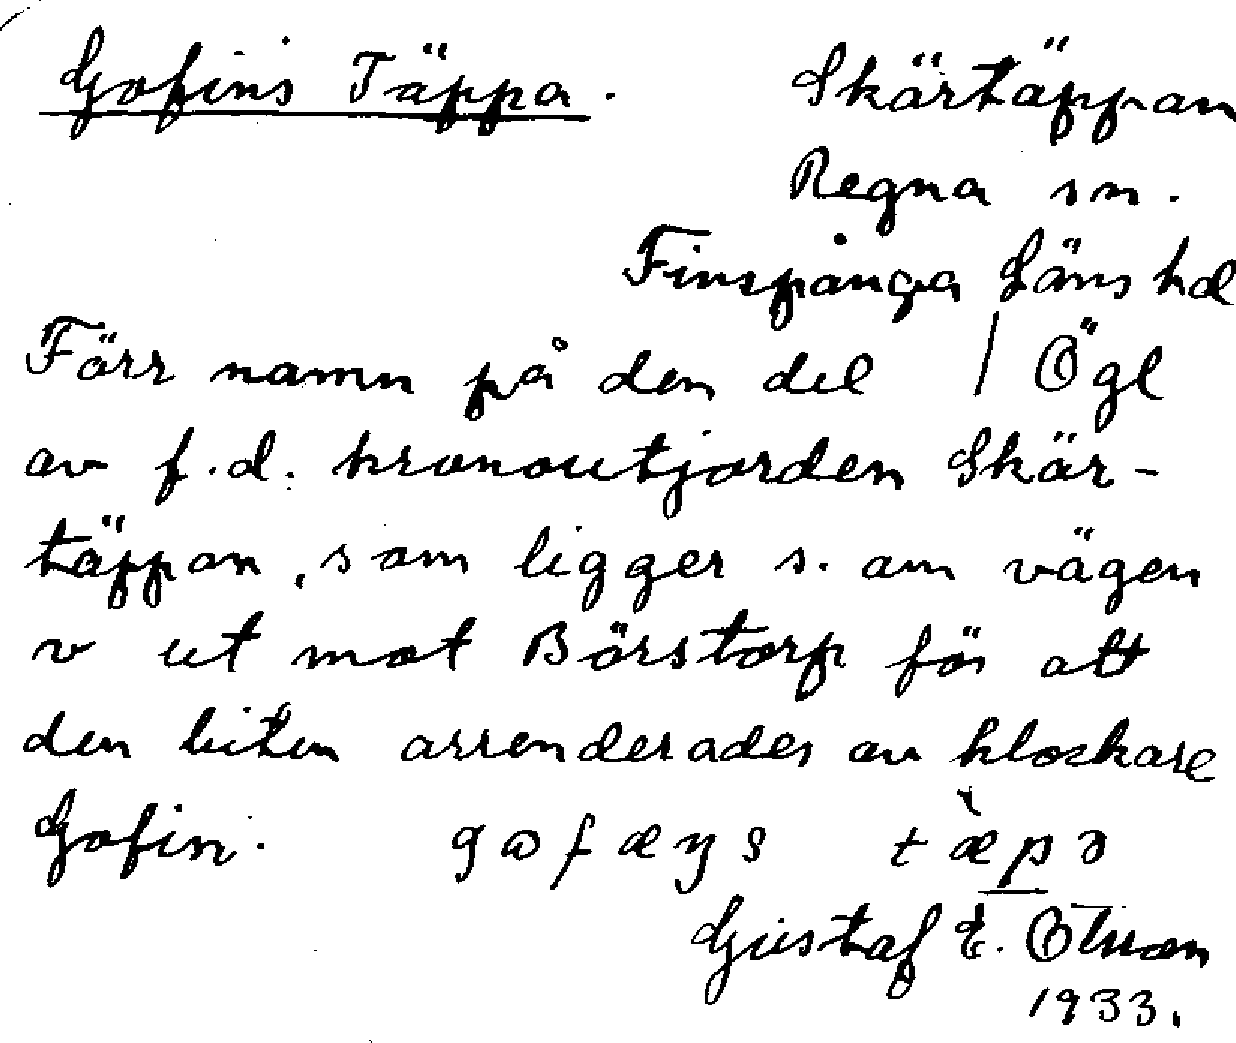 Gofins Täppa. Skärtäppan
Regna sn.
Finspånga Läns hd
Förr namn på den del / Ögl
av f.d. kronoutjorden Skär-
täppan, som ligger s. om vägen
v ut mot Börstorp för att
den biten arrenderades av klockare
Gofin.
Gustaf E.
1933.